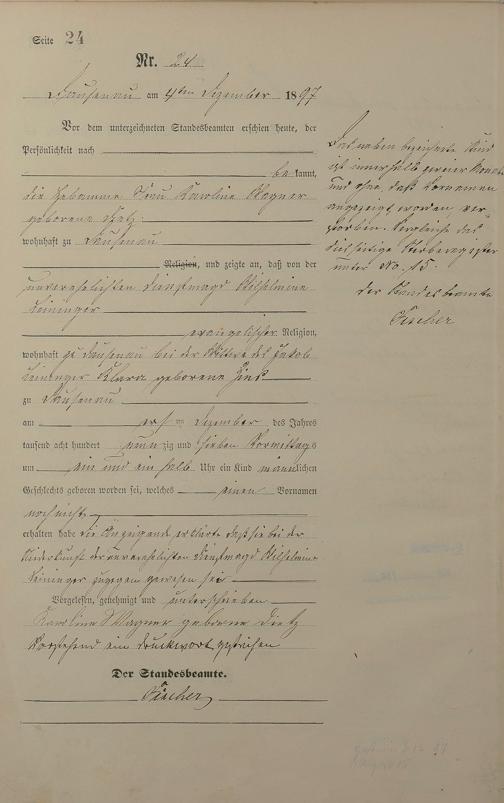 Seite 24
Nr. 24
Dausenau am 4ten Dezember 1897
Vor dem unterzeichneten Standesbeamten erschien heute, der
Persönlichkeit nach
be kannt,
die Hebamme Frau Karoline Wagner
geborene Dietz
wohnhaft zu Dausenau
Religion, und zeigte an, daß von der
unverehelichten Dienstmagd Wilhelmine
Leininger
evangelischer Religion,
wohnhaft zu Dausenau bei der Wittwe des Jakob
Leininger Klara geborene
zu Dausenau
am ersten Dezember des Jahres
tausend acht hundert neun zig und sieben Vormittags
um ein und ein halb Uhr ein Kind männlichen
Geschlechts geboren worden sei, welches einen Vornamen
noch nicht
erhalten habe die Anzeigende erklärte daß sie bei der
Niederkunft der unverehelichten Dienstmagd Wilhelmine
Leininger zugegen gewesen sei
Vorgelesen, genehmigt und unterschrieben
Karoline Wagner geborene Dietz
Vorstehend ein Druckwort gestrichen
Der Standesbeamte.
Fischer
Das neben bezeichnete Kind
ist innerhalb zweier Monate
und ohne daß Vornamen
angezeigt worden ver-
storben. Vergleiche das
diesseitige Sterberegister
unter No. 15.
Der Standesbeamte
Fischer